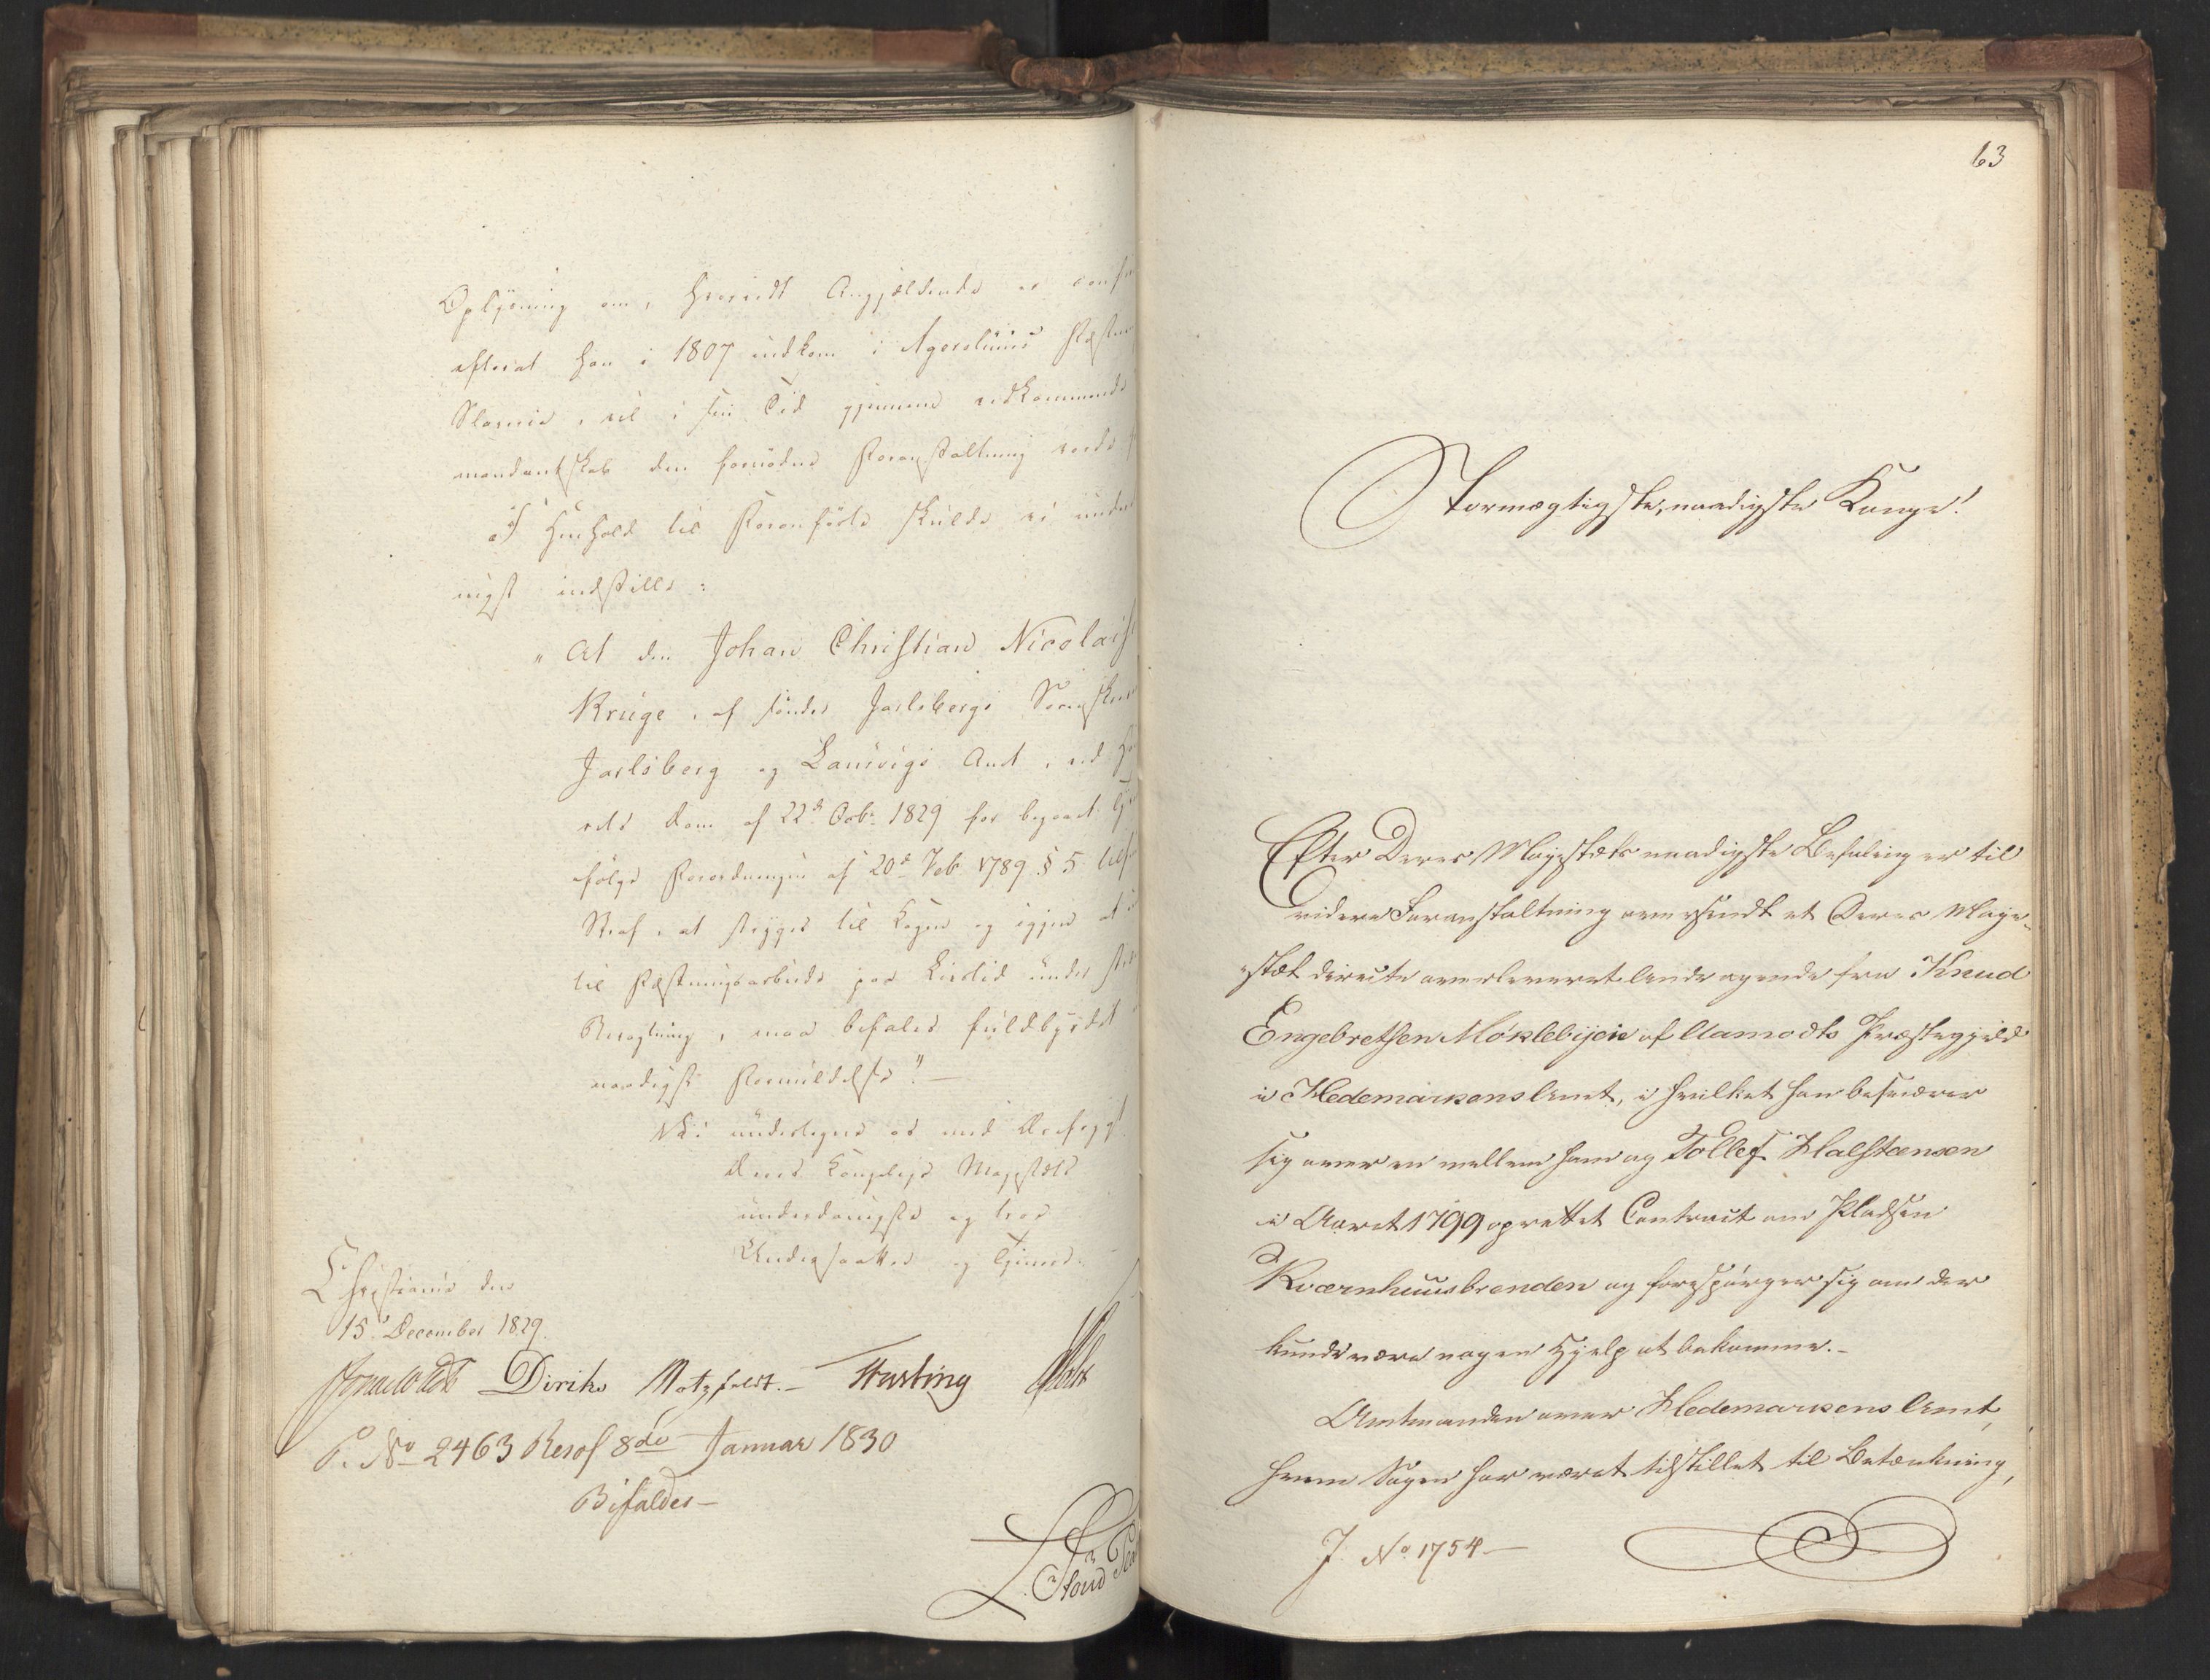 Oplysning om, hvorvidt Angjældende er
efterat han i 1807 indkom i Agershuus Fæstn
Slaverie, vil i sin Tid gjennem vedkommende
mandantskab den fornødne Foranstaltning vorde
I Henhold til Foranførte skulde vi under
nigst indstille:
"At den Johan Christian Nicolais
Kruge, af søndre Jarlsbergs Sorenskri
Jarlsberg og Laurvigs Amt, ved Hø
rets Dom af 22d Octb: 1829 for begaaet Ty
følge Forordningen af 20d Feb 1789 § 5
Straf, at stryges til Kagen og igjen at
til Fæstningsarbeide paa Livstid under
Bevogtning, maa befales fuldbyrdet
naadigst Formildelse". —
Vi undertegne os med Ærefrygt
Deres Kongelige Majestæts
underdanigste og troe
Undersaatter og Tjenere
Christiania den
15d December 1829.
Diriks Motzfeldt. — Hasting Holst
P. No 2463 Resol 8de Januar 1830
Bifaldes —
63
Stormægtigste, naadigste Konge!
Efter Deres Majestæts naadigste Befaling er til
videre Foranstaltning oversendt et Deres Maje-
stæt directe overleveret Andragende fra Knud
Engebretsen Moklebyeie af Aamodts Præstegjeld
i Hedemarkens Amt, i hvilket han besværer
sig over en mellem ham og Tollef Halstensen
i Aaret 1799 oprettet Contract om Pladsen
Kværnhuusbrenden og forespørger sig om der
kunde være nogen Hjelp at bekomme. -
Amtmanden over Hedemarkens Amt,
hvem Sagen har været tilstillet til Betænkning,
J. No. 1754 —